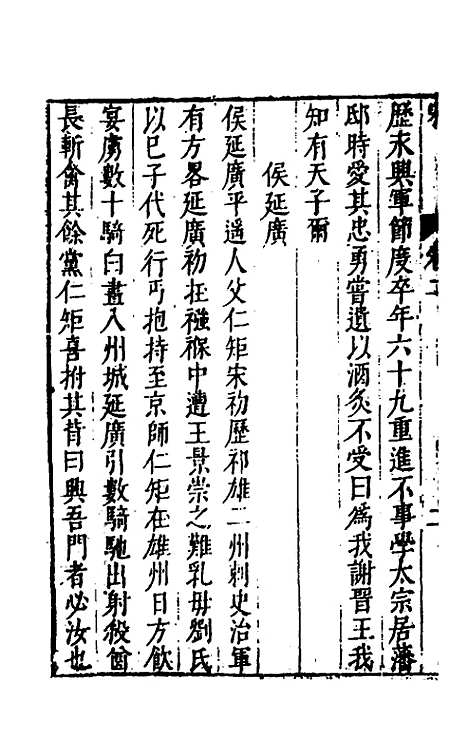 歷永興軍節度卒年六十九重進不事學太宗居藩
邸時愛其忠勇嘗遺以酒炙不受曰為我謝晉王我
知有天子爾
侯延廣
侯延廣平遥人父仁矩宋初歷祁雄二州刺史治軍
有方畧延廣初在襁褓中遭王景崇之難乳毋劉氏
以已子代死行丐抱持至京師仁矩在雄州日方飲
宴虜數十騎白晝入州城延廣引數騎馳出射殺酋
長斬首其餘黨仁矩喜拊其背曰興吾門者必汝也